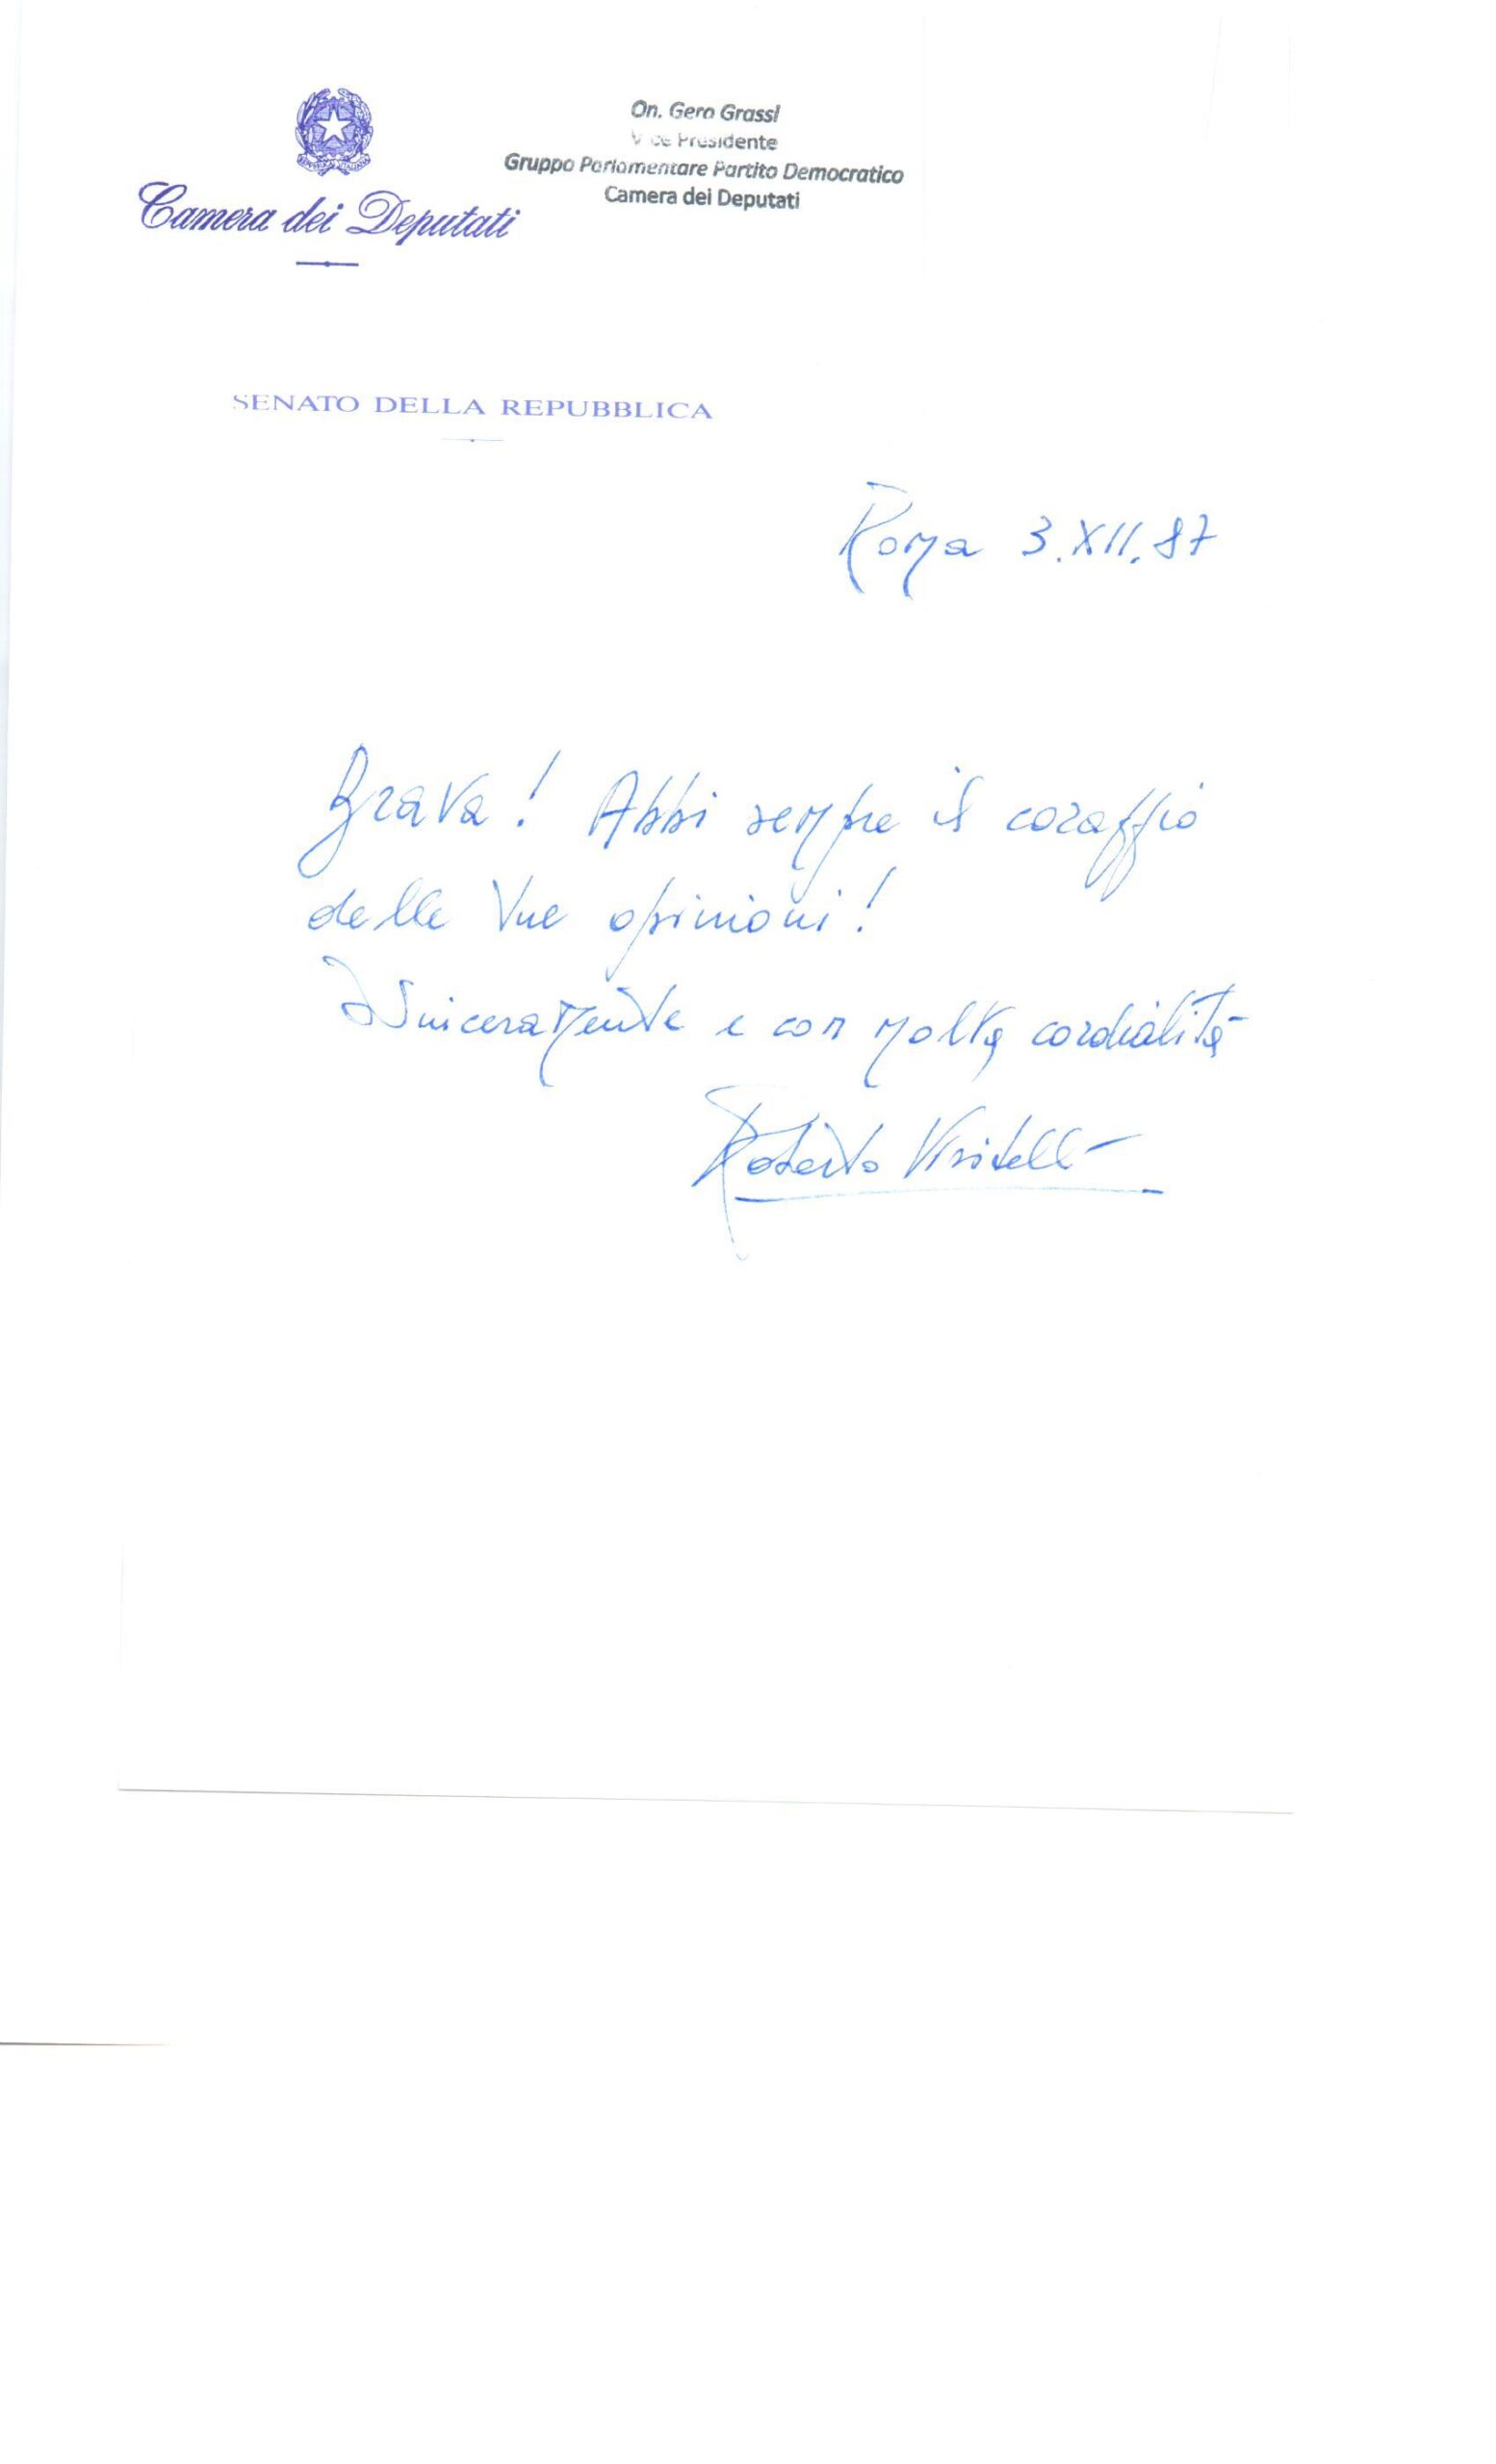 On. Gero Grassi
Vice Presidente
Gruppo Parlamentare Partito Democratico
Camera dei Deputati
Camera dei Deputati
SENATO DELLA REPUBBLICA
Roma 3.XII.87
Brava! Abbi sempre il coraggio
delle tue opinioni!
Sinceramente e con molta cordialità
Roberto Visitelli